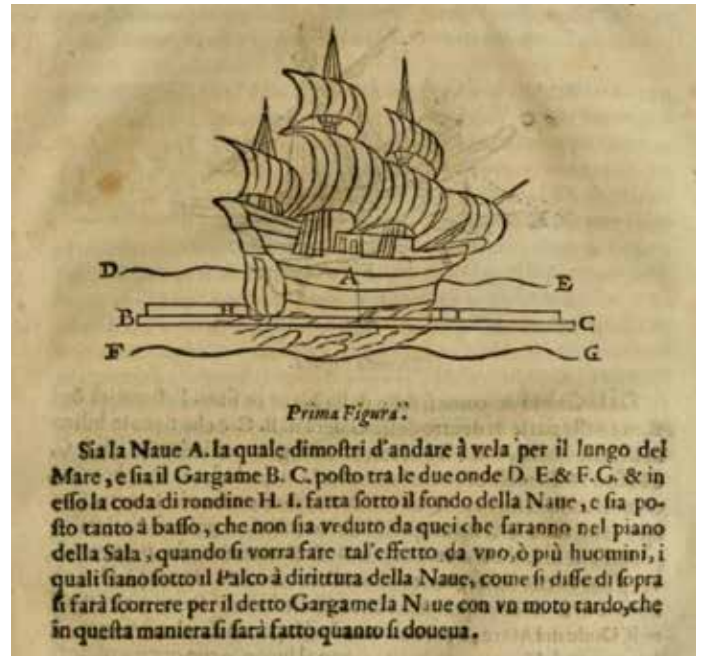 A
D
E
B
C
F
G
Prima Figura.
Sia la Naue A. la quale dimoſtri d'andare à vela per il lungo del
Mare, e ſia il Gargame B. C. poſto tra le due onde D. E. & F. G. & in
eſſo la coda di rondine H. I. fatta ſotto il fondo della Naue, e ſia po-
ſto tanto à baſſo, che non ſia veduto da quei che ſaranno nel piano
della Sala, quando ſi vorra fare tal'effetto da vno, ò più huomini, i
quali ſiano ſotto il Palco à dirittura della Naue, come ſi diſſe di ſopra
ſi farà ſcorrere per il detto Gargame la Naue con vn moto tardo, che
in queſta maniera ſi ſarà fatto quanto ſi doueua.